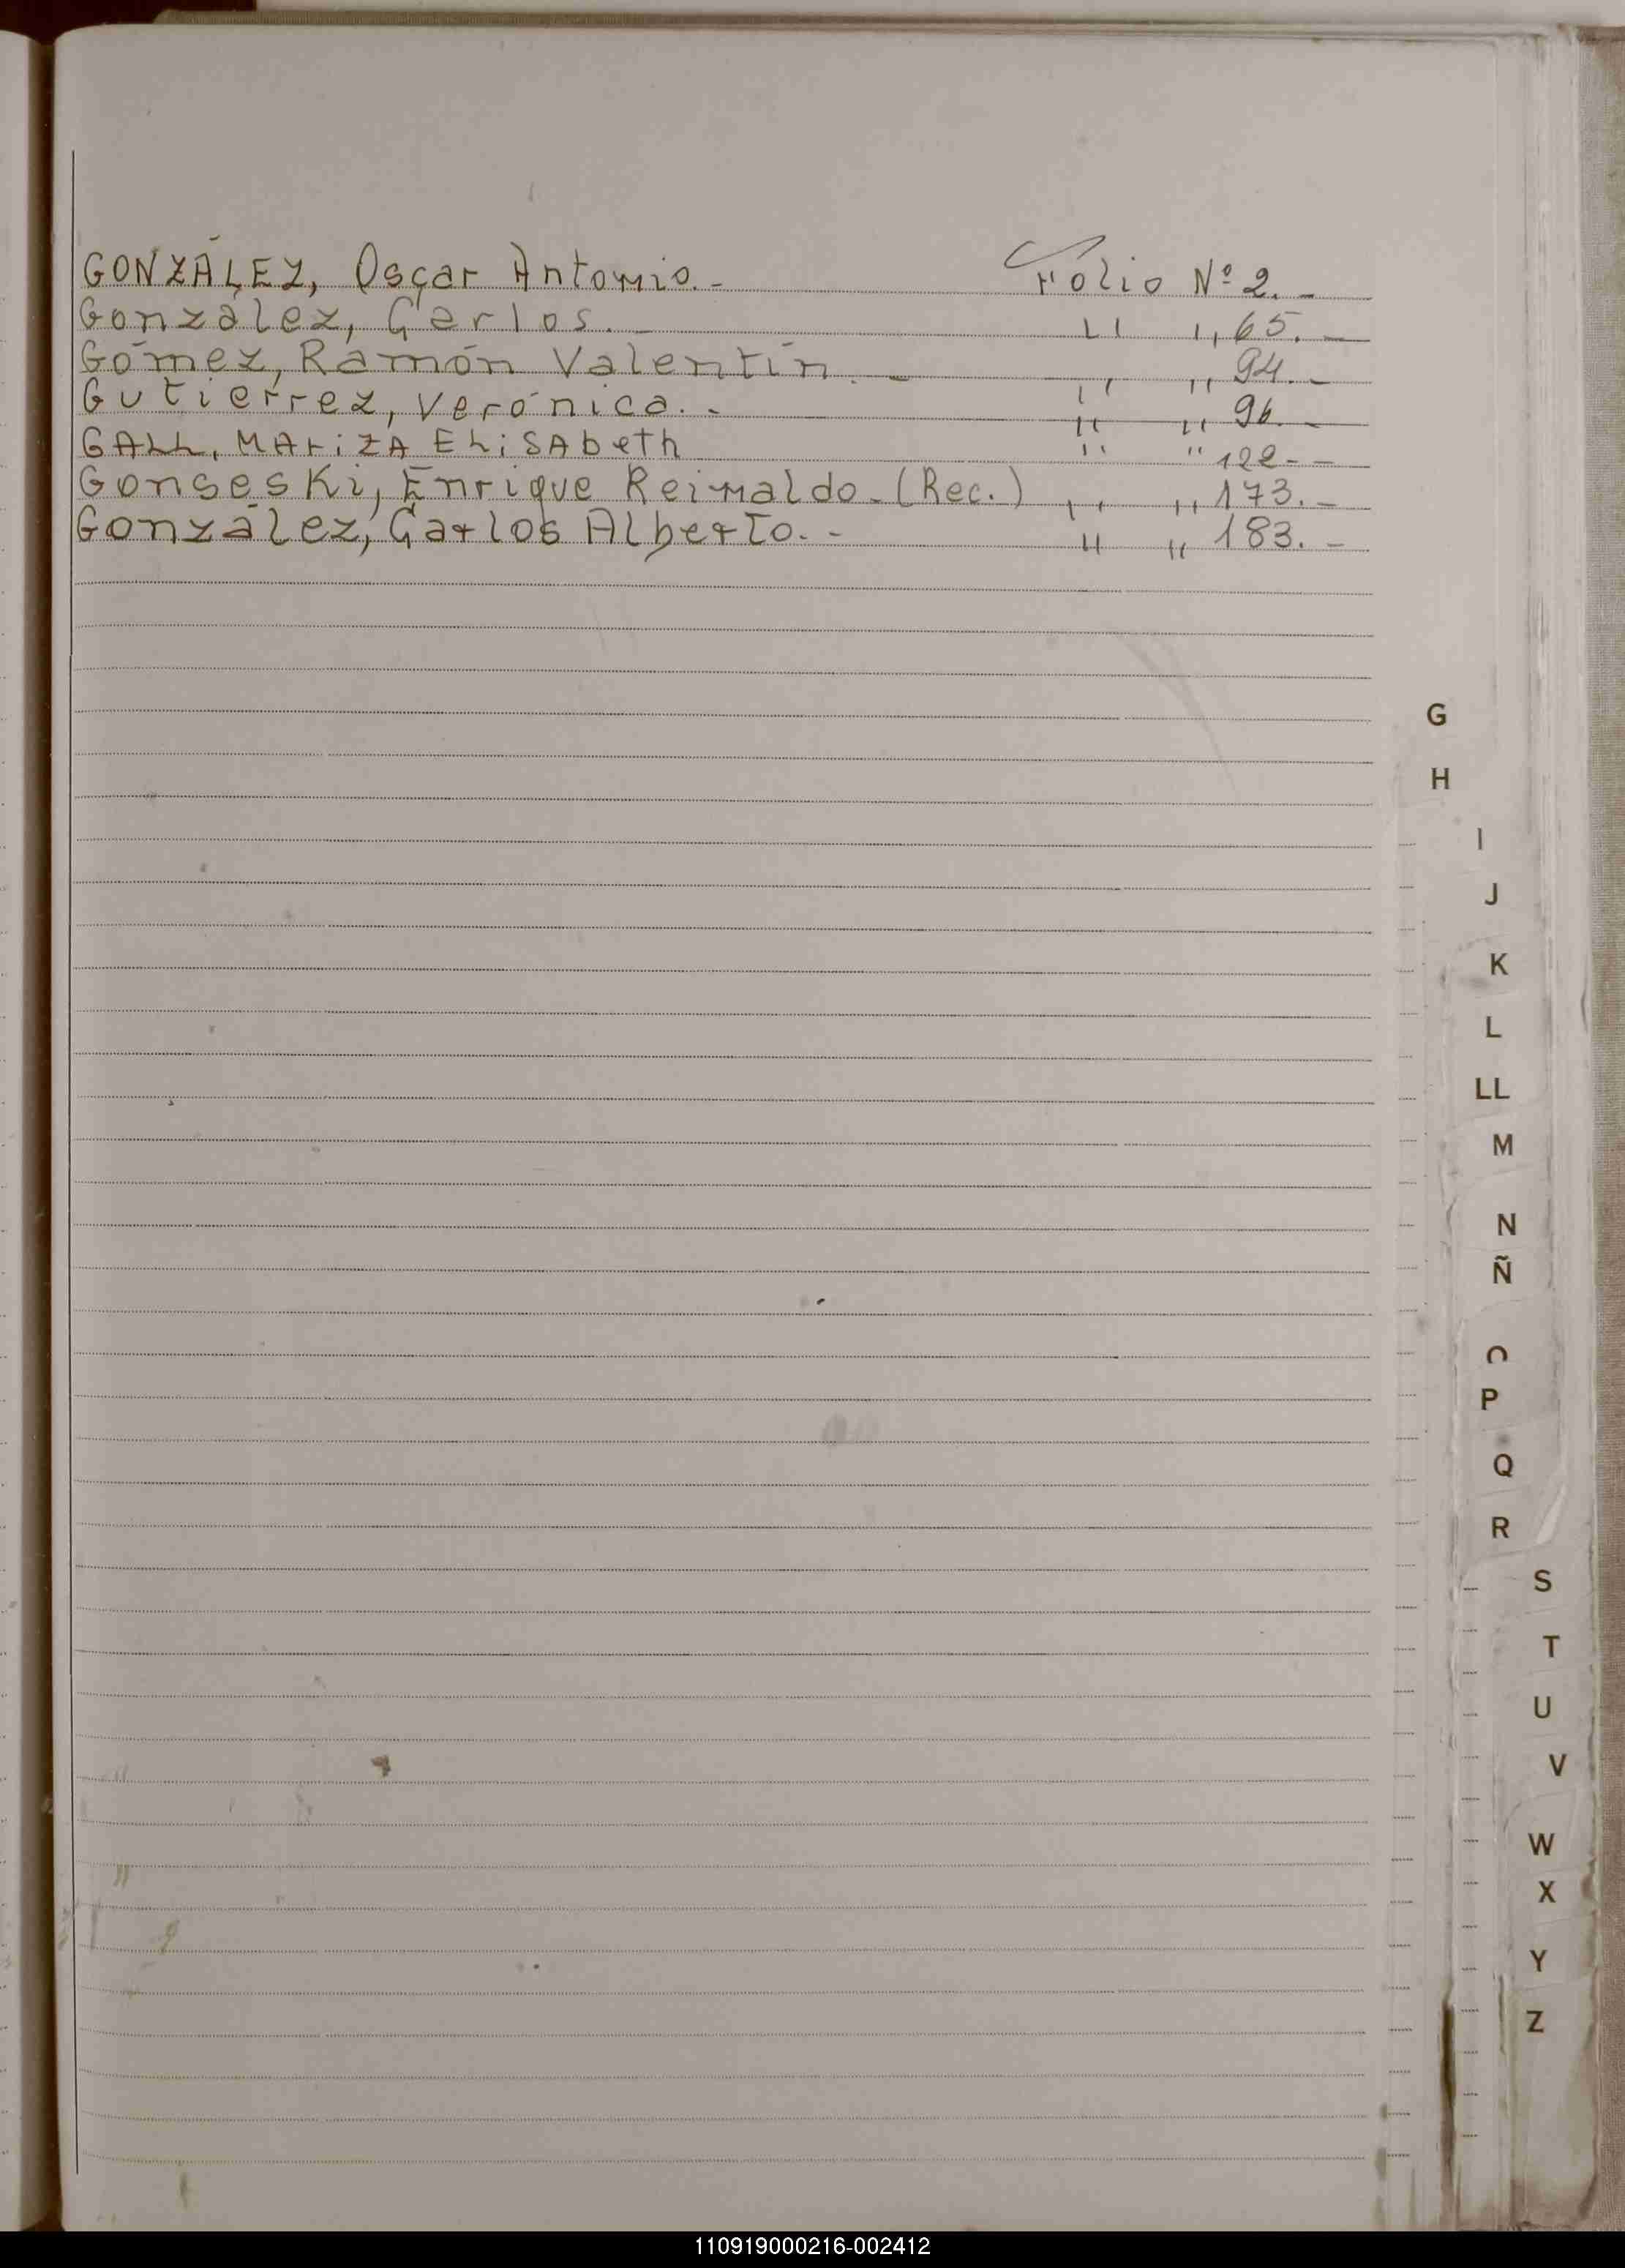 GONZÁLEZ, Oscar Antonio.- Folio Nº 2.-
González, Carlos.- " " 65.-
Gómez, Ramón Valentín.- " " 94.-
Gutierrez, Verónica.- " " 96.-
GALL, MAriZA ELiSAbeth " " 122.-
Gonseski, Enrique Reinaldo.(Rec.) " " 173.-
González, Carlos Alberto.- " " 183.-
G
H
I
J
K
L
LL
M
N
Ñ
O
P
Q
R
S
T
U
V
W
X
Y
Z
110919000216-002412